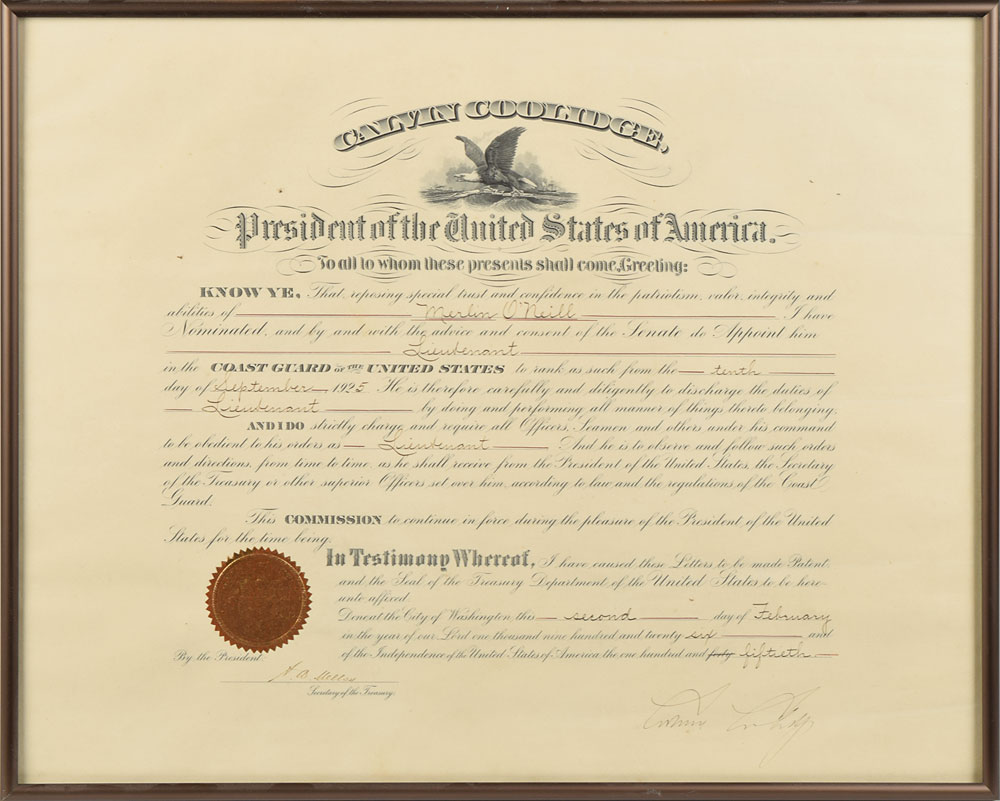 CALVIN COOLIDGE,
President of the United States of America.
To all to whom these presents shall come, Greeting:
KNOW YE, That reposing special trust and confidence in the patriotism, valor, integrity and
abilities of Merlin O'Neill I have
Nominated, and by and with the advice and consent of the Senate do Appoint him
Lieutenant
in the COAST GUARD OF THE UNITED STATES to rank as such from the tenth
day of September 1925. He is therefore carefully and diligently to discharge the duties of
Lieutenant by doing and performing all manner of things thereto belonging.
AND I DO strictly charge and require all Officers, Seamen and others under his command
to be obedient to his orders as Lieutenant And he is to observe and follow such orders
and directions, from time to time, as he shall receive from the President of the United States, the Secretary
of the Treasury or other superior Officers set over him, according to law and the regulations of the Coast
Guard.
This COMMISSION to continue in force during the pleasure of the President of the United
States for the time being.
In Testimony Whereof, I have caused these Letters to be made Patent
and the Seal of the Treasury Department of the United States to be here-
unto affixed.
Done at the City of Washington this second day of February
in the year of our Lord one thousand nine hundred and twenty six and
of the Independence of the United States of America the one hundred and forty fiftieth
By the President:
A. W. Mellon
Secretary of the Treasury.
Calvin Coolidge